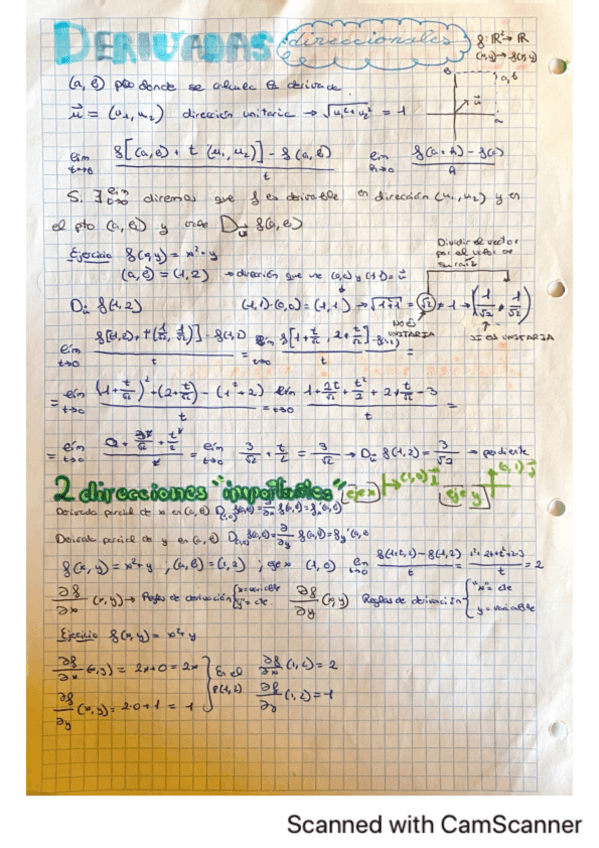 DERIVADAS direccionales f: ℝ² → ℝ
(x,y) → f(x,y)
(a, b) pto donde se calcula la derivada. b a, b
u⃗ = (u₁, u₂) dirección unitaria → √(u₁² + u₂²) = 1 u⃗ a
lim t→0 (f[(a,b) + t (u₁, u₂)] - f(a,b)) / t lim h→0 (f(a+h) - f(a)) / h
Si ∃ lim t→0 diremos que f es derivable en dirección (u₁, u₂) y en
el pto (a, b) y D_u⃗ f(a, b)
Dividir el vector por el valor de su raíz
Ejercicio f(x,y) = x² + y
(a, b) = (1, 2) → dirección que une (0,0) y (1,1) = u⃗
D_u⃗ f(1,2) (1,1) - (0,0) = (1,1) → √(1+1) = √2 ≠ 1 → (1/√2, 1/√2)
NO ES UNITARIA SÍ ES UNITARIA
lim t→0 (f[(1,2) + t(1/√2, 1/√2)] - f(1,2)) / t = lim t→0 (f[1 + t/√2, 2 + t/√2] - f(1,2)) / t =
= lim t→0 ((1 + t/√2)² + (2 + t/√2) - (1² + 2)) / t = lim t→0 (1 + 2t/√2 + t²/2 + 2 + t/√2 - 3) / t =
= lim t→0 (0 + 3t/√2 + t²/2) / t = lim t→0 3/√2 + t/2 = 3/√2 → D_u⃗ f(1,2) = 3/√2 → pendiente
2 direcciones "importantes" eje x (1,0) i⃗ eje y (0,1) j⃗
Derivada parcial de x en (a, b) D_(1,0) f(a,b) = ∂/∂x f(a,b) = f'x(a,b)
Derivada parcial de y en (a, b) D_(0,1) f(a,b) = ∂/∂y f(a,b) = f'y(a,b)
f(x, y) = x² + y , (a, b) = (1, 2) ; eje x (1, 0) lim t→0 (f(1+t, 2) - f(1,2)) / t = (1² + 2t + t² + 2 - 3) / t = 2
∂f/∂x (x, y) → Reglas de derivación { x = variable "y" = cte. ∂f/∂y (x, y) Reglas de derivación { "x" = cte y = variable
Ejercicio f(x, y) = x² + y
∂f/∂x (x, y) = 2x + 0 = 2x } En el P(1, 2) ∂f/∂x (1, 2) = 2
∂f/∂y (x, y) = 2·0 + 1 = 1 ∂f/∂y (1, 2) = 1
Scanned with CamScanner